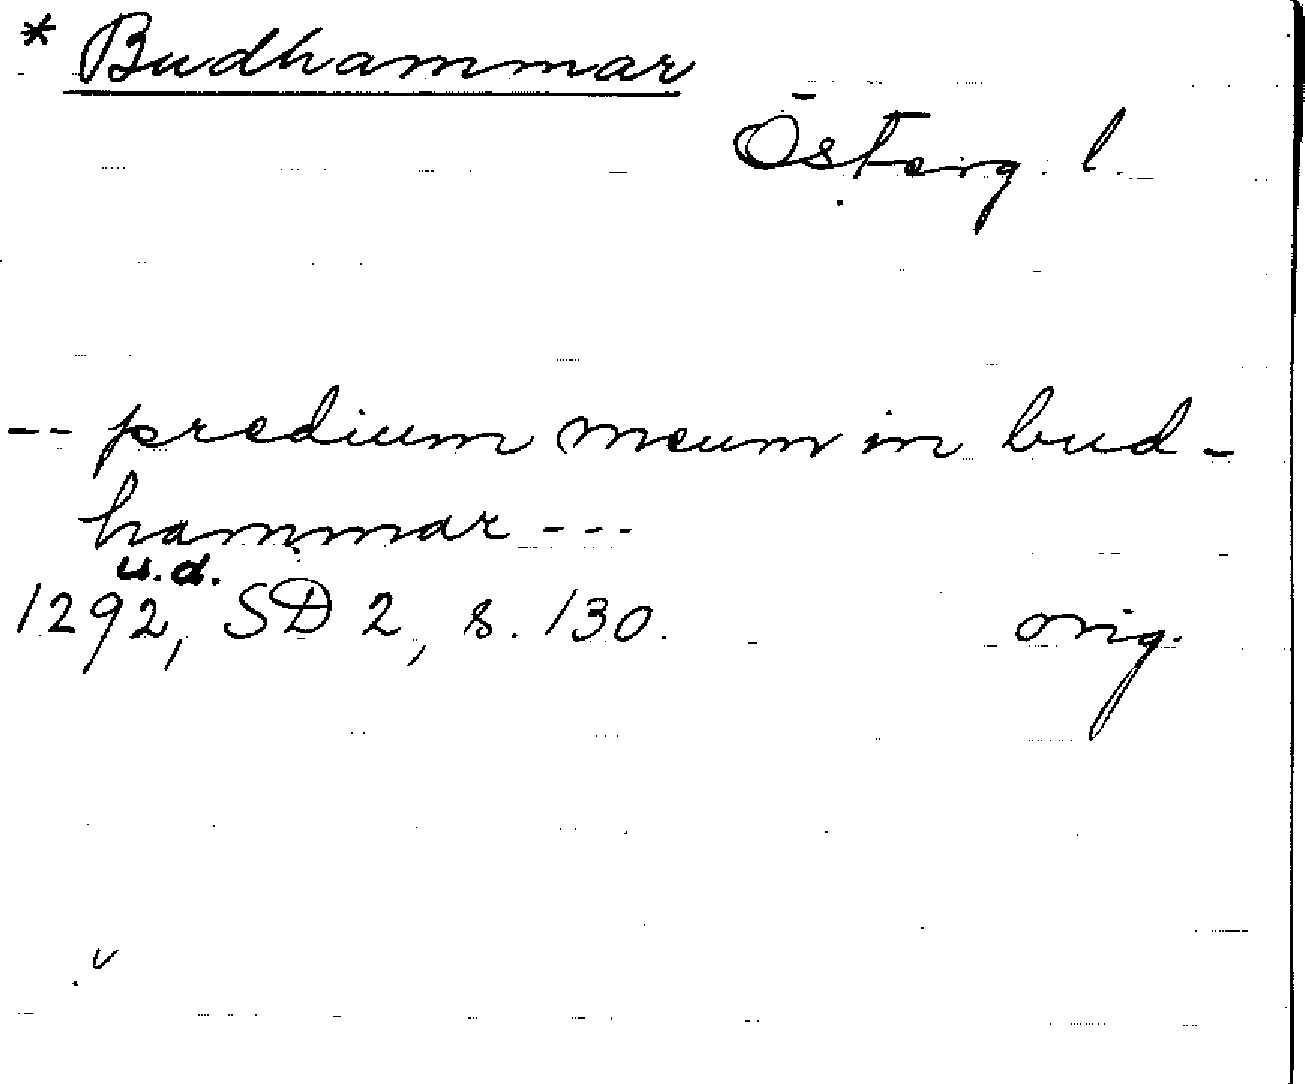 * Budhammar
Österg. l.
-- predium meum in bud-
hammar ---
u.d.
1292, SD 2, s. 130. orig.
v